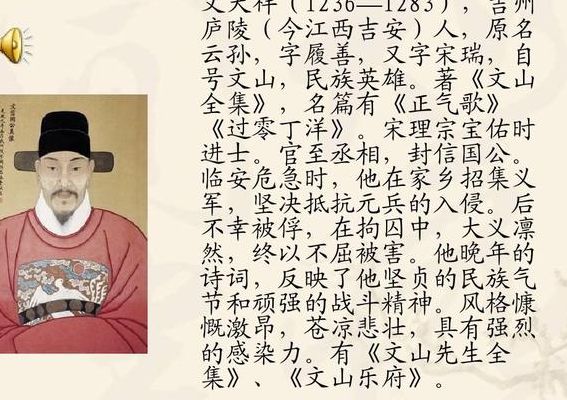 文天祥（1236—1283），吉州
庐陵（今江西吉安）人，原名
云孙，字履善，又字宋瑞，自
号文山，民族英雄。著《文山
全集》，名篇有《正气歌》
《过零丁洋》。宋理宗宝佑时
进士。官至丞相，封信国公。
临安危急时，他在家乡招集义
军，坚决抵抗元兵的入侵。后
不幸被俘，在拘囚中，大义凛
然，终以不屈被害。他晚年的
诗词，反映了他坚贞的民族气
节和顽强的战斗精神。风格慷
慨激昂，苍凉悲壮，具有强烈
的感染力。有《文山先生全
集》、《文山乐府》。